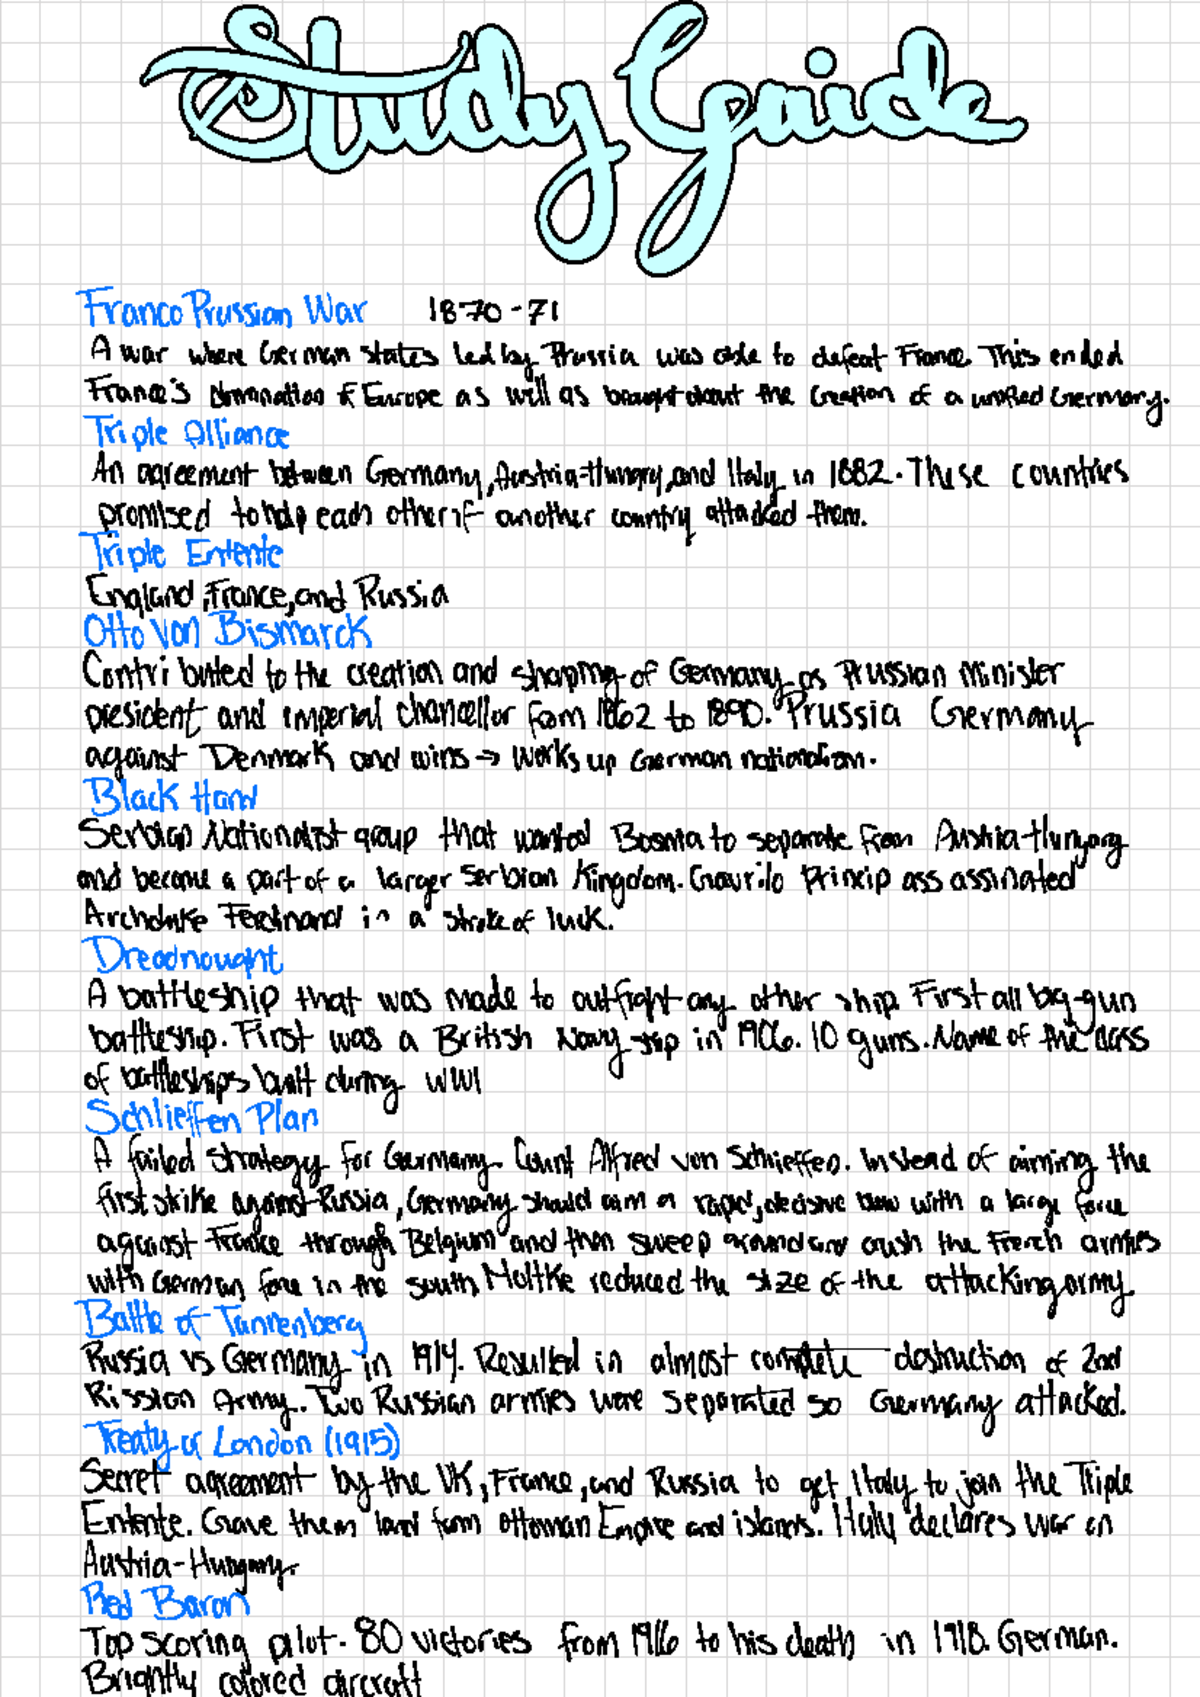 Study Guide
Franco Prussian War 1870-71
A war where German states led by Prussia was able to defeat France. This ended
France's domination of Europe as well as brought about the creation of a unified Germany.
Triple Alliance
An agreement between Germany, Austria-Hungry, and Italy in 1882. These countries
promised to help each other if another country attacked them.
Triple Entente
England, France, and Russia
Otto Von Bismarck
Contributed to the creation and shaping of Germany as Prussian Minister
president and imperial chancellor from 1862 to 1890. Prussia Germany
against Denmark and wins → Works up German nationalism.
Black Hand
Serbian Nationalist group that wanted Bosnia to separate from Austria-Hungary
and become a part of a larger Serbian Kingdom. Gavrilo Prinxip assassinated
Archduke Ferdinand in a stroke of luck.
Dreadnought
A battleship that was made to outfight any other ship. First all big-gun
battleship. First was a British Navy ship in 1906. 10 guns. Name of the class
of battleships built during WW1
Schlieffen Plan
A failed strategy for Germany. Count Alfred von Schlieffen. Instead of aiming the
first strike against Russia, Germany should aim a rapid, decisive blow with a large force
against France through Belgium and then sweep around and crush the French armies
with German force in the south Moltke reduced the size of the attacking army.
Battle of Tannenberg
Russia vs Germany in 1914. Resulted in almost complete destruction of 2nd
Rission Army. Two Russian armies were separated so Germany attacked.
Treaty of London (1915)
Secret agreement by the UK, France, and Russia to get Italy to join the Triple
Entente. Gave them land from Ottoman Empire and islands. Italy declares war on
Austria-Hungary.
Red Baron
Top scoring pilot. 80 victories from 1916 to his death in 1918. German.
Brightly colored aircraft